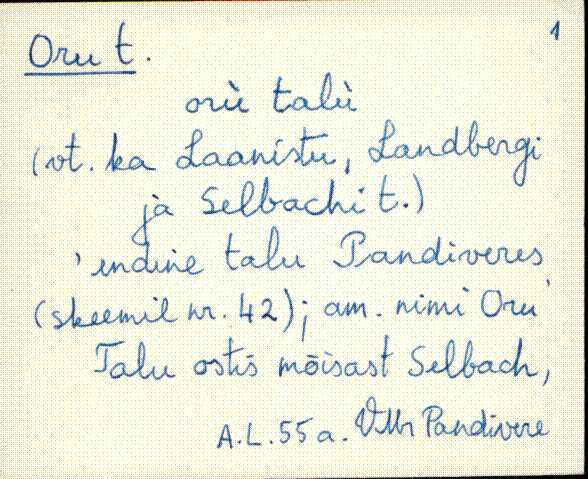 1
Oru t.
orù talù
(vt. ka Laanistu, Landbergi
ja Selbachi t.)
'endine talu Pandiveres
(skeemil nr. 42); am. nimi Oru'
Talu ostis mõisast Selbach,
A.L. 55 a. VMr Pandivere